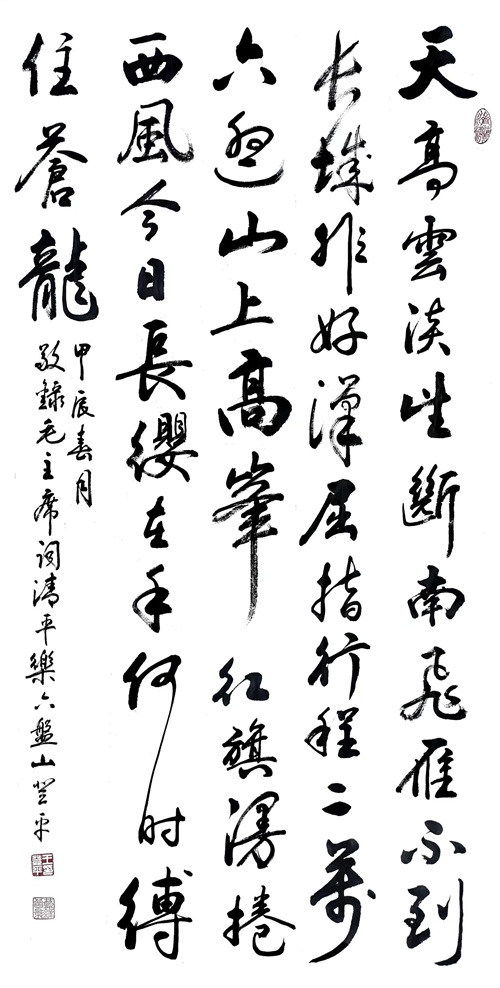 天高雲淡望斷南飛雁不到
长城非好漢屈指行程二萬
六盘山上高峯红旗漫捲
西風今日長纓在手何时縛
住蒼龍
甲辰春月
敬錄毛主席词清平樂六盤山登平